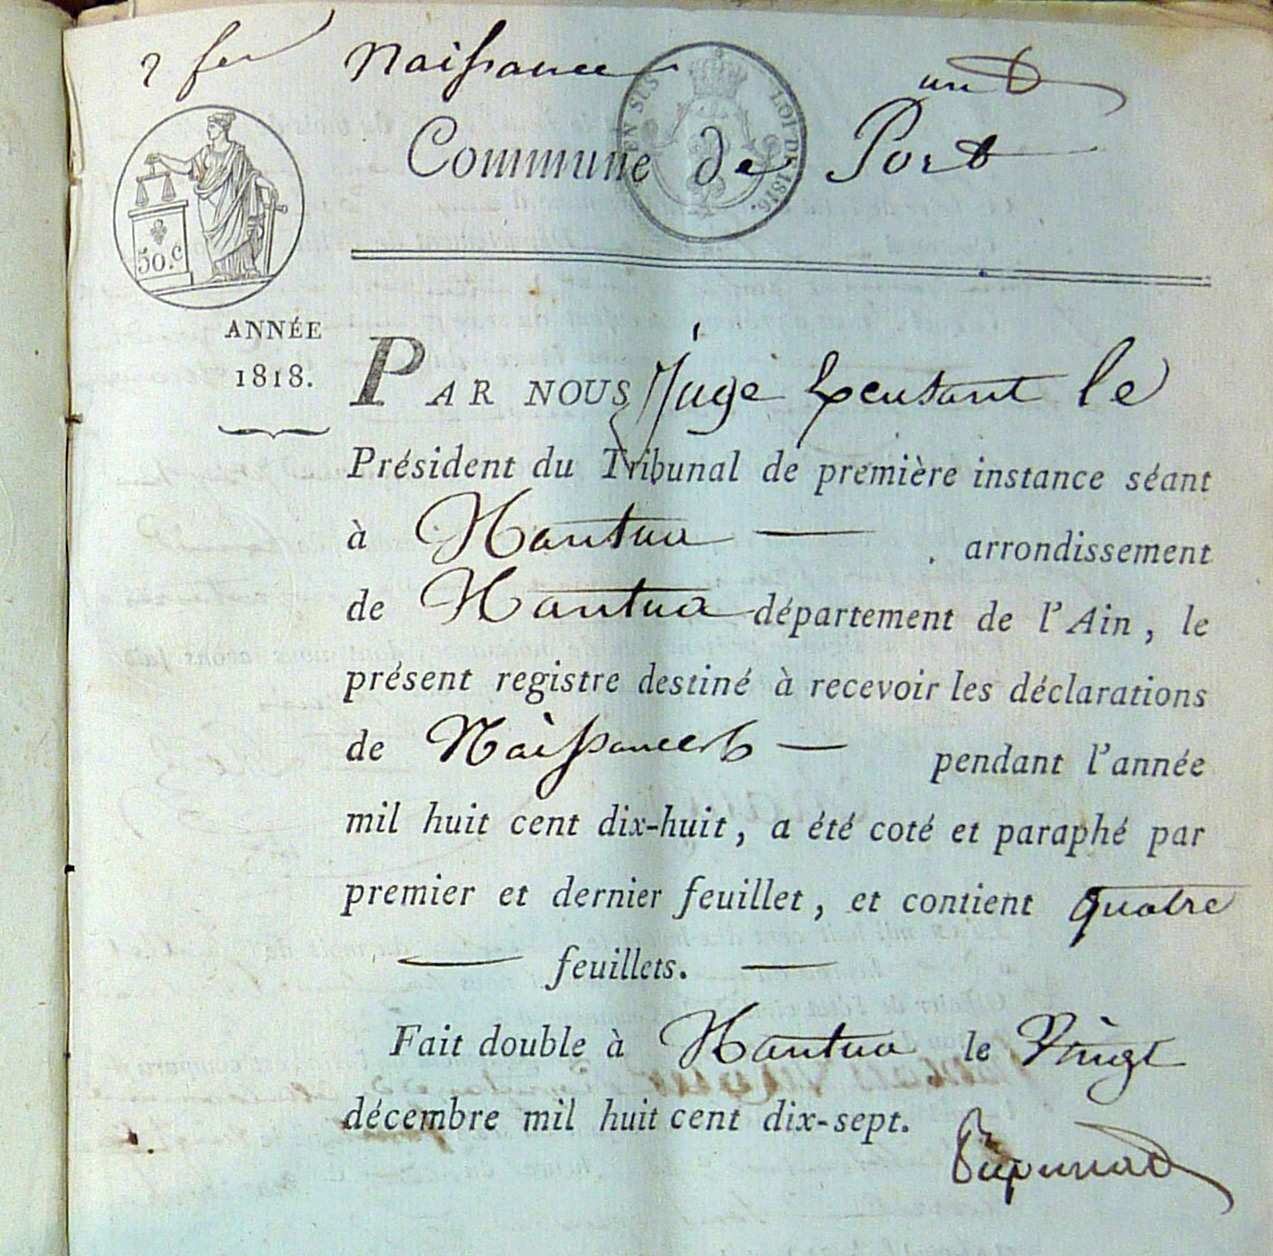 2 fer Naissance un
EN SUS LOI DE 1816.
Commune de Port
50. C
ANNÉE
1818.
PAR NOUS Juge le
Président du Tribunal de première instance séant
à Nantua — arrondissement
de Nantua département de l'Ain, le
présent registre destiné à recevoir les déclarations
de Naissances — pendant l'année
mil huit cent dix-huit, a été coté et paraphé par
premier et dernier feuillet, et contient quatre
— feuillets. —
Fait double à Nantua le Vingt
décembre mil huit cent dix-sept.